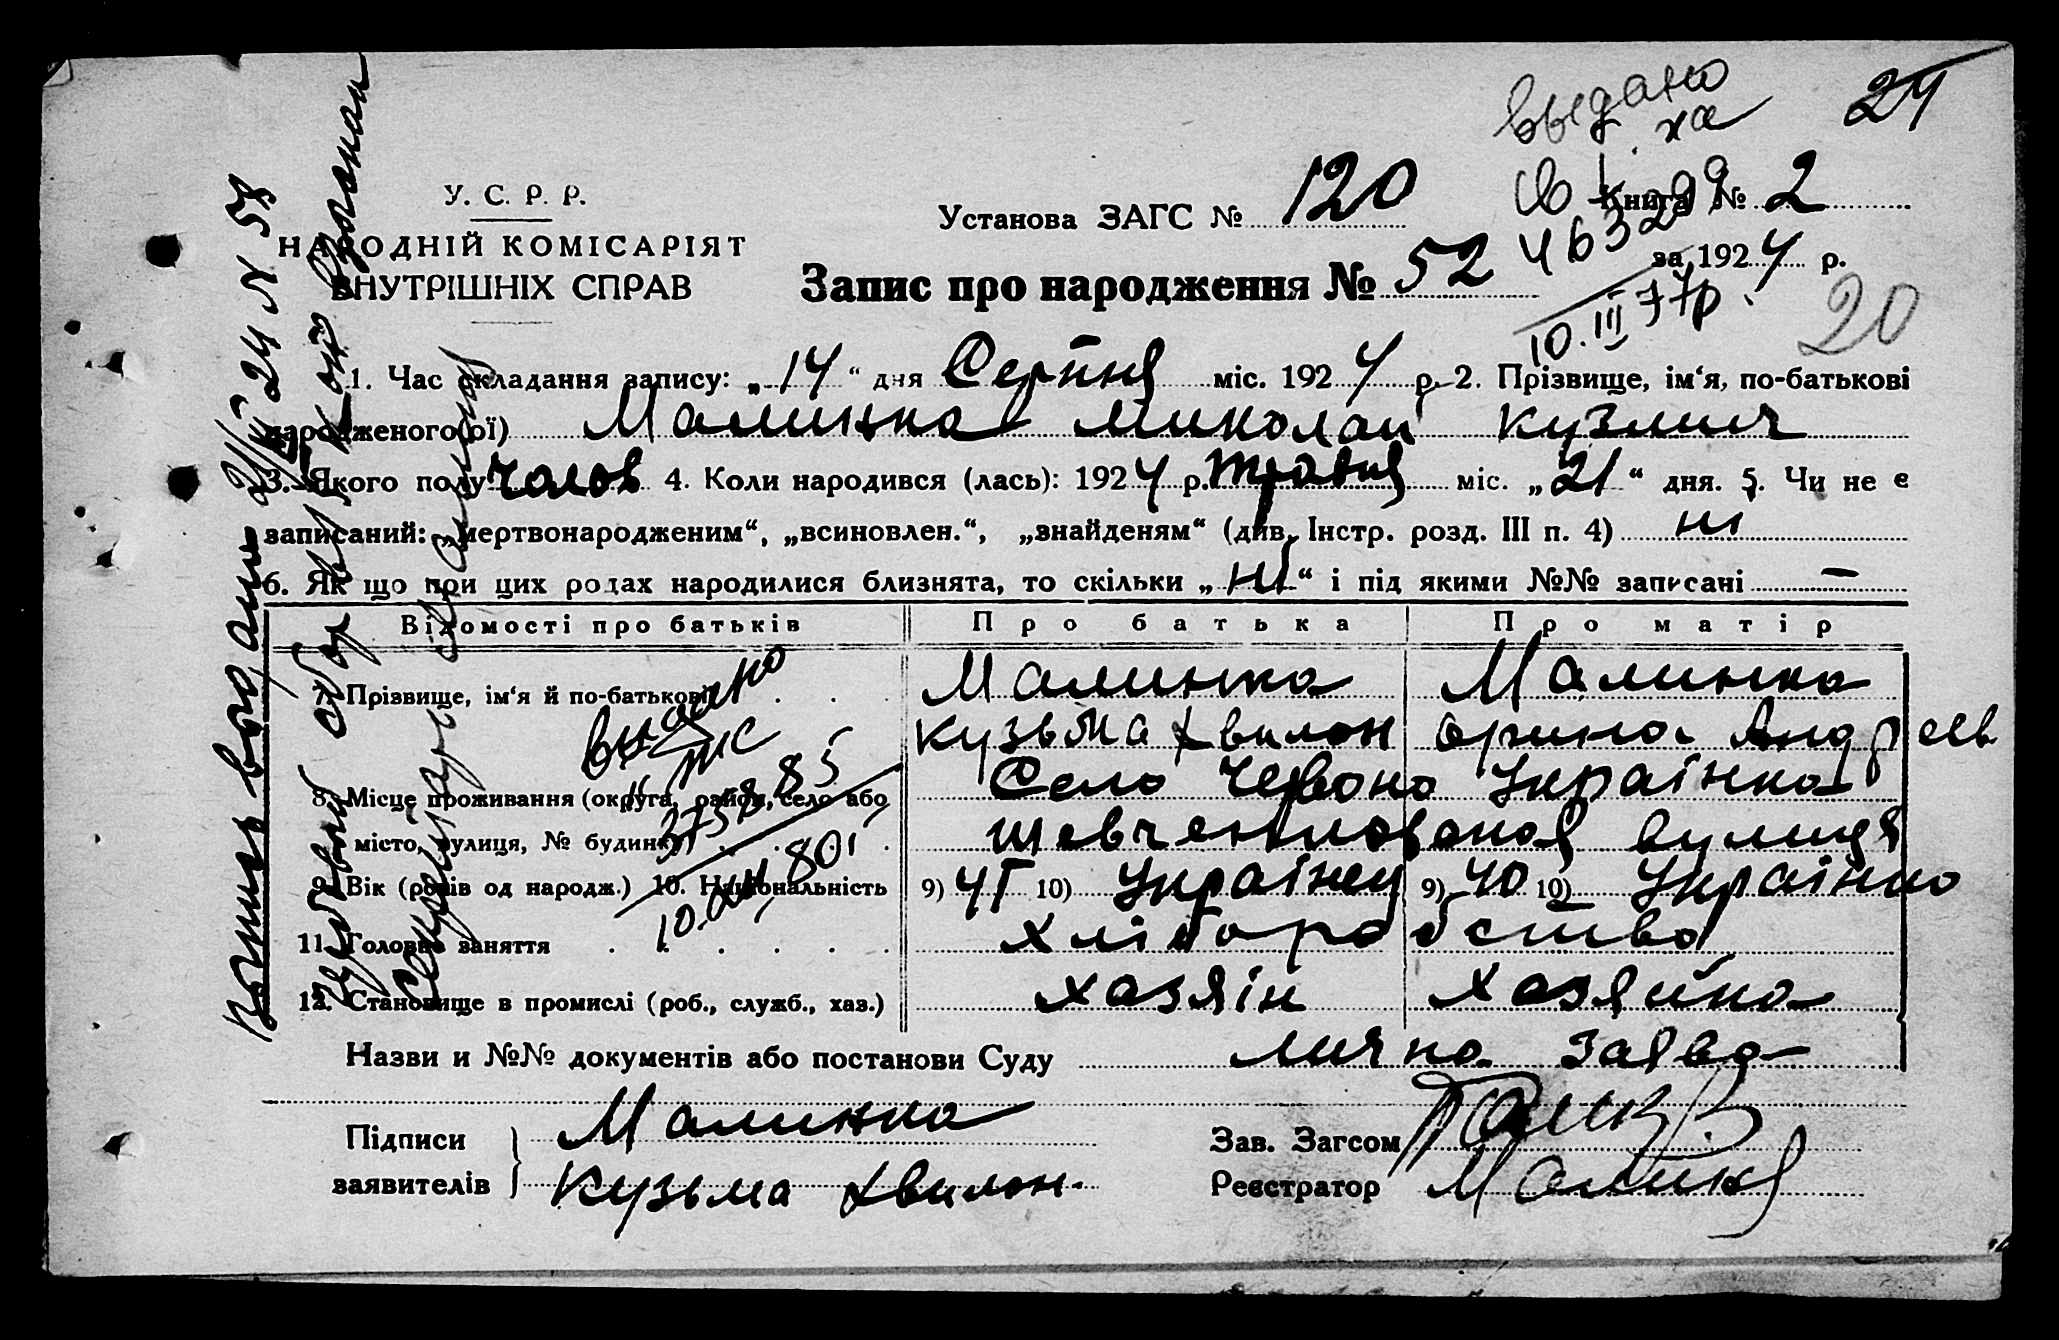 выдано
24
У. С. Р. Р.
НАРОДНІЙ КОМІСАРІЯТ
ВНУТРІШНІХ СПРАВ
Установа ЗАГС № 120
Книга № 2
за 1924 р.
Запис про народження № 52
463299
10.III 77р.
20
1. Час складання запису: „14“ дня Серпня міс. 1924 р. 2. Прізвище, ім‘я, по-батькові
народженого(ої) Малинка Миколай Кузмич
3. Якого полу чолов 4. Коли народився (лась): 1924 р. травня міс. „21“ дня. 5. Чи не є
записаний: „мертвонародженим“, „всиновлен.“, „знайденям“ (див. Інстр. розд. III п. 4) ні
6. Як що при цих родах народилися близнята, то скільки „ні“ і під якими №№ записані —
Відомості про батьків Про батька Про матір
7. Прізвище, ім‘я й по-батькові Малинка Малинка
Кузьма Хвилон Орина Андреев
8. Місце проживання (округа, район, село або Село Червоно Українка
місто, вулиця, № будинку) шевченковская вулиця
9. Вік (років од народж.) 10. Національність 9) 45 10) Українец 9) 40 10) Українка
11. Головне заняття хліборобство
12. Становище в промислі (роб., служб., хаз.) хазяін хазяйка
Назви и №№ документів або постанови Суду лична заява
Підписи заявителів Малинка
Кузьма Хвилон.
Зав. Загсом
Реєстратор
выдано